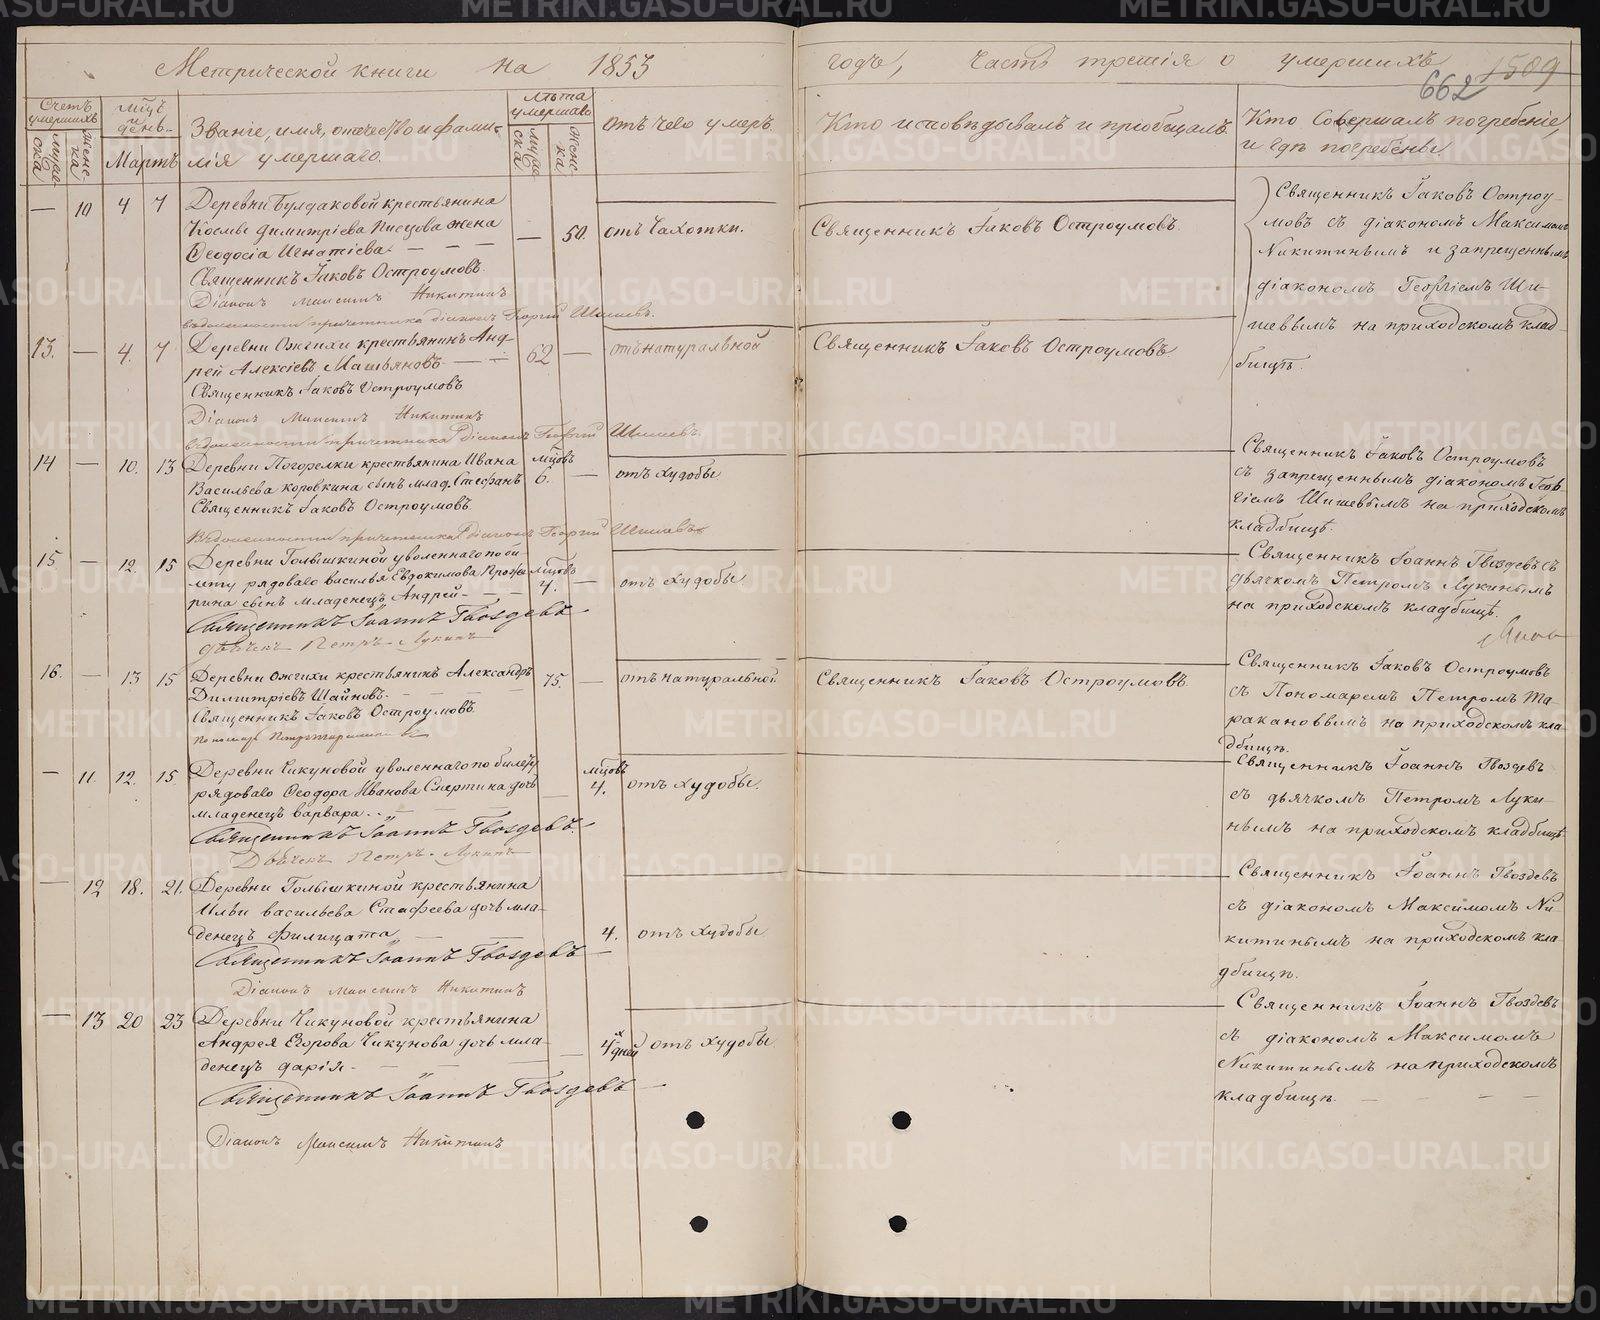 Метрической книги на 1853 годъ, Часть третія о умершихъ
662 1509
Счетъ умершихъ
мужеска
женска
мѣцъ и день.
Мартъ
Званіе, имя, отчество и фамилія умершаго.
Лѣта умершаго
мужеска
женска
Отъ чего умеръ.
Кто исповѣдывалъ и пріобщалъ
Кто Совершалъ погребеніе,
и гдѣ погребены.
— 10 4 7 Деревни Булдаковой крестьянина
Космы Димитріева Писцова жена — 50. отъ Чахотки.
Ѳеодосія Игнатіева.
Священникъ Іаковъ Остроумовъ.
Діаконъ Максимъ Никитинъ
въ должности причетника діаконъ Георгій Шишевъ.
Священникъ Іаковъ Остроумовъ.
Священникъ Іаковъ Остроу-
мовъ съ діакономъ Максимомъ
Никитинымъ и запрещеннымъ
діакономъ Георгіемъ Ши-
шевымъ на приходскомъ клад-
бищѣ.
13. — 4. 7 Деревни Ожгихи крестьянинъ Анд-
рей Алексіевъ Машьяновъ 62 — отъ натуральной
Священникъ Іаковъ Остроумовъ
Діаконъ Максимъ Никитинъ
въ должности причетника діаконъ Георгій Шишевъ.
Священникъ Іаковъ Остроумовъ
14 — 10. 13 Деревни Погорелки крестьянина Ивана мѣцовъ
Васильева Коровкина сынъ млад. Стефанъ 6. — отъ худобы
Священникъ Іаковъ Остроумовъ.
въ должности причетника діаконъ Георгій Шишевъ
Священникъ Іаковъ Остроумовъ
съ запрещеннымъ діакономъ Геор-
гіемъ Шишевымъ на приходскомъ
кладбищѣ.
15. — 12. 15 Деревни Голышкиной уволеннаго по би-
лету рядоваго Василья Евдокимова мѣцовъ 4. — отъ худобы
сынъ младенецъ Андрей.
Священникъ Іоаннъ Гвоздевъ
дьячекъ Петръ Лукинъ
Священникъ Іоаннъ Гвоздевъ съ
дьячкомъ Петромъ Лукинымъ
на приходскомъ кладбищѣ.
16. — 13 15 Деревни Ожгихи крестьянинъ Александръ 75. — отъ натуральной
Димитріевъ Шайновъ.
Священникъ Іаковъ Остроумовъ.
Священникъ Іаковъ Остроумовъ.
Священникъ Іаковъ Остроумовъ
съ Пономаремъ Петромъ Та-
ракановымъ на приходскомъ кла-
дбищѣ.
— 11. 12. 15. Деревни Чикуновой уволеннаго по билету мѣцовъ
рядоваго Ѳеодора Иванова Смертина дочь — 4. отъ худобы.
младенецъ Варвара.
Священникъ Іоаннъ Гвоздевъ
Дьячекъ Петръ Лукинъ
Священникъ Іоаннъ Гвоздевъ
съ дьячкомъ Петромъ Луки-
нымъ на приходскомъ кладбищѣ
— 12 18. 21. Деревни Голышкиной крестьянина
Ильи Васильева Стафеева дочь мла-
денецъ Филицата 4. отъ худобы
Священникъ Іоаннъ Гвоздевъ
Діаконъ Максимъ Никитинъ
Священникъ Іоаннъ Гвоздевъ
съ діакономъ Максимомъ Ни-
китинымъ на приходскомъ кла-
дбищѣ.
— 13 20 23 Деревни Чикуновой крестьянина
Андрея Егорова Чикунова дочь мла- — 4х дней отъ худобы
денецъ Дарія.
Священникъ Іоаннъ Гвоздевъ
Діаконъ Максимъ Никитинъ
Священникъ Іоаннъ Гвоздевъ
съ діакономъ Максимомъ
Никитинымъ на приходскомъ
кладбищѣ.
METRIKI.GASO-URAL.RU